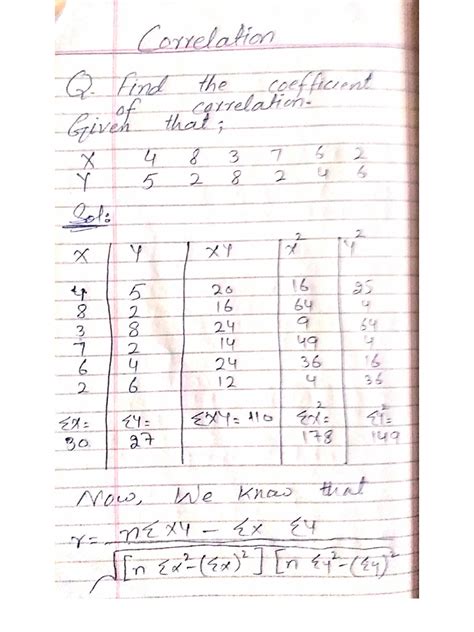 Correlation
Q Find the coefficient
of correlation.
Given that;
X 4 8 3 7 6 2
Y 5 2 8 2 4 6
Sol:
X Y XY X² Y²
4 5 20 16 25
8 2 16 64 4
3 8 24 9 64
7 2 14 49 4
6 4 24 36 16
2 6 12 4 36
Σx= Σy= ΣXY= 110 Σx²= Σy²=
30 27 178 149
Now, We know that
r= nΣXY - Σx Σy
√[n Σx²-(Σx)²] [n Σy²-(Σy)²